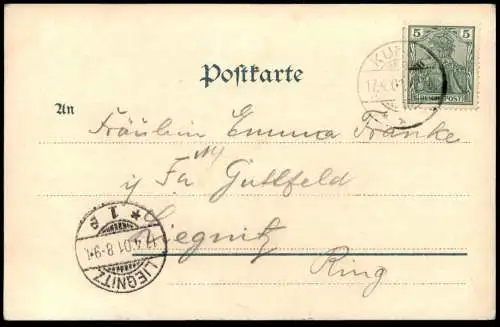 5 5
KU
17.4.01
REICHSPOST
Postkarte
An
Fräulein Emma Franke
Fa. Guttfeld
Liegnitz
Ring
LIEGNITZ
17.4.01.8-9V.
* 1 a